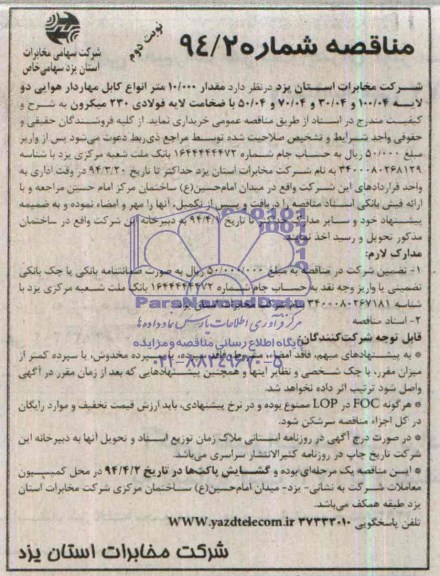 شرکت سهامی مخابرات
استان یزد سهامی خاص
نوبت دوم
مناقصه شماره ۹۴/۲
شرکت مخابرات استان یزد درنظر دارد مقدار ۱۰/۰۰۰ متر انواع کابل مهاردار هوایی دو
لایه ۱۰۰/۰۴ و ۳۰/۰۴ و ۷۰/۰۴ و ۵۰/۰۴ با ضخامت لایه فولادی ۲۳۰ میکرون به شرح و
کیفیت مندرج در اسناد از طریق مناقصه عمومی خریداری نماید. از کلیه فروشندگان حقیقی و
حقوقی واجد شرایط و تشخیص صلاحیت شده توسط مراجع ذی‌ربط دعوت می‌شود پس از واریز
مبلغ ۵۰/۰۰۰ ریال به حساب جام شماره ۱۶۴۴۴۴۴۴۷۲ بانک ملت شعبه مرکزی یزد با شناسه
۳۴۰۰۰۸۰۲۶۸۱۲۹ به نام شرکت مخابرات استان یزد حداکثر تا تاریخ ۹۴/۳/۲۰ در وقت اداری به
واحد قراردادهای این شرکت واقع در میدان امام‌حسین(ع) ساختمان مرکز امام حسین مراجعه و با
ارائه فیش بانکی اسناد مناقصه را دریافت و پس از تکمیل، آنها را مهر و امضاء نموده و به ضمیمه
پیشنهاد خود و سایر مدارک حداکثر تا تاریخ ۹۴/۴/۱ به دبیرخانه این شرکت واقع در ساختمان
مذکور تحویل و رسید اخذ نمایند.
مدارک لازم:
۱- تضمین شرکت در مناقصه به مبلغ ۵۰/۰۰۰/۰۰۰ ریال به صورت ضمانتنامه بانکی یا چک بانکی
تضمینی یا واریز وجه نقد به حساب جام شماره ۱۶۴۴۴۴۴۴۷۲ بانک ملت شعبه مرکزی یزد با
شناسه ۳۴۰۰۰۸۰۲۶۷۱۸۱ به نام شرکت مخابرات استان یزد
۲- اسناد مناقصه
ParsNamadData
مرکز فرآوری اطلاعات پارس نماد داده‌ها
پایگاه اطلاع رسانی مناقصه و مزایده
۰۲۱-۸۸۳۴۹۶۷۰-۵
قابل توجه شرکت‌کنندگان:
* به پیشنهادهای مبهم، فاقد امضاء، مشروط و فاقد سپرده، یا سپرده مخدوش، یا سپرده کمتر از
میزان مقرر، یا چک شخصی و نظایر اینها و همچنین پیشنهادهایی که بعد از زمان مقرر در آگهی
واصل شود ترتیب اثر داده نخواهد شد.
* هرگونه FOC در LOP ممنوع بوده و در نرخ پیشنهادی، باید ارزش قیمت تخفیف و موارد رایگان
در کل اجزاء مناقصه سرشکن شود.
* در صورت درج آگهی در روزنامه استانی ملاک زمان توزیع اسناد و تحویل آنها به دبیرخانه این
شرکت تاریخ چاپ در روزنامه کثیرالانتشار سراسری می‌باشد.
* این مناقصه یک مرحله‌ای بوده و گشایش پاکت‌ها در تاریخ ۹۴/۴/۲ در محل کمیسیون
معاملات شرکت به نشانی- یزد- میدان امام‌حسین(ع) ساختمان مرکزی شرکت مخابرات استان
یزد طبقه همکف می‌باشد.
تلفن پاسخگویی ۳۷۲۳۳۰۱۰ WWW.yazdtelecom.ir
شرکت مخابرات استان یزد